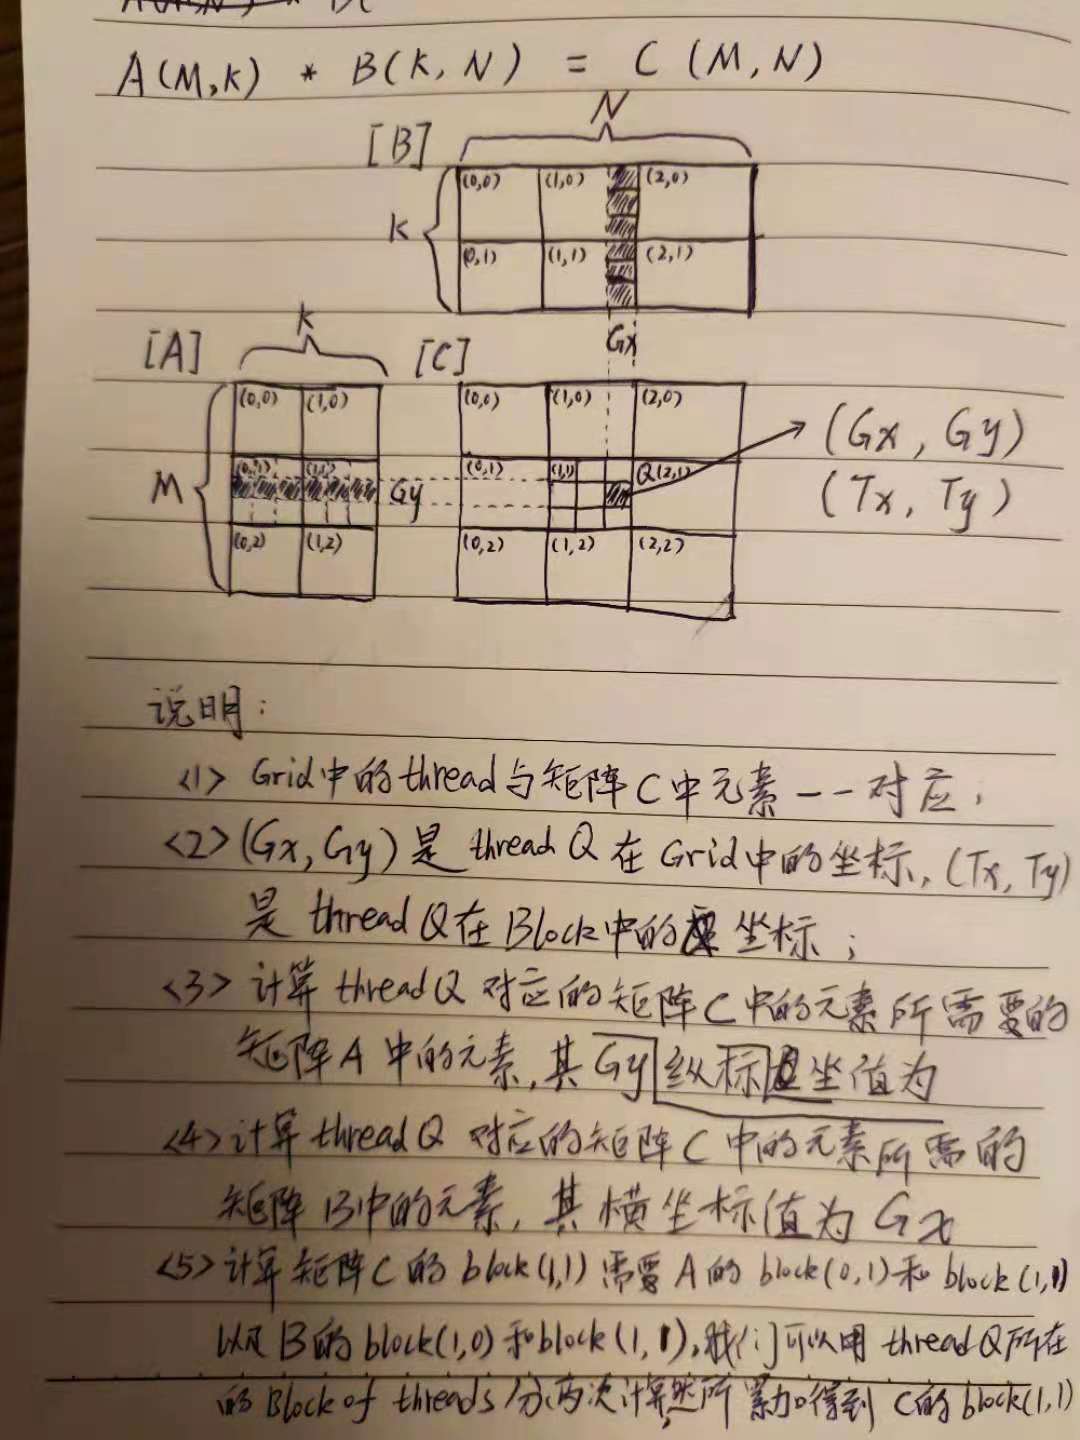 A(M,K) * B(K,N) = C(M,N)
N
[B]
K
(0,0) (1,0) (2,0)
(0,1) (1,1) (2,1)
Gx
K
[A] [C]
M
(0,0) (1,0)
(0,1) (1,1)
(0,2) (1,2)
Gy
(0,0) (1,0) (2,0)
(0,1) (1,1) Q(2,1)
(0,2) (1,2) (2,2)
(Gx, Gy)
(Tx, Ty)
说明:
<1> Grid中的thread与矩阵C中元素一一对应;
<2> (Gx, Gy)是 thread Q 在 Grid中的坐标, (Tx, Ty)
是 thread Q在 Block中的坐标;
<3> 计算 thread Q 对应的矩阵C中的元素所需要的
矩阵A中的元素,其Gy纵标坐值为
<4> 计算 thread Q 对应的矩阵C中的元素所需的
矩阵B中的元素,其横坐标值为Gx
<5> 计算矩阵C的block(1,1)需要A的block(0,1)和block(1,1)
以及B的block(1,0)和block(1,1),我们可以用 thread Q所在
的 Block of threads 分两次计算然所累加得到 C的block(1,1)